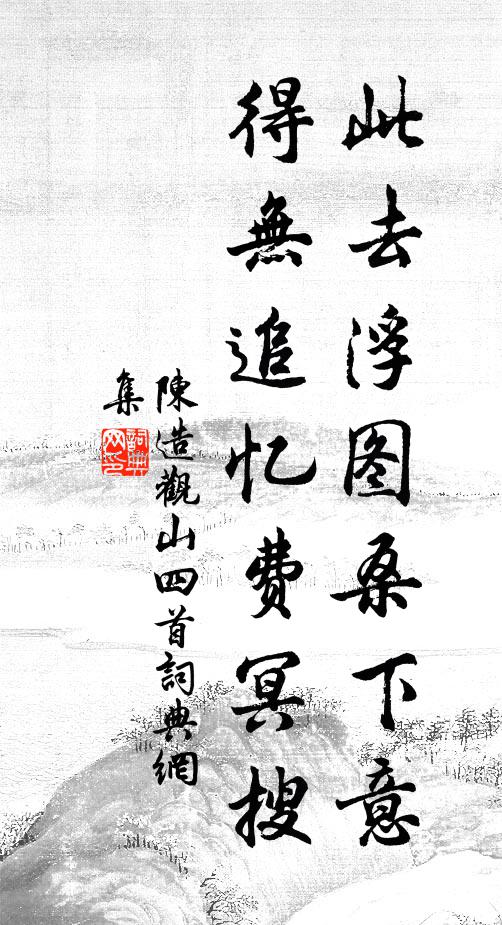 此去浮图桑下意
得無追忆費冥搜
陳造觀山四首詞典網
集
詞典网印